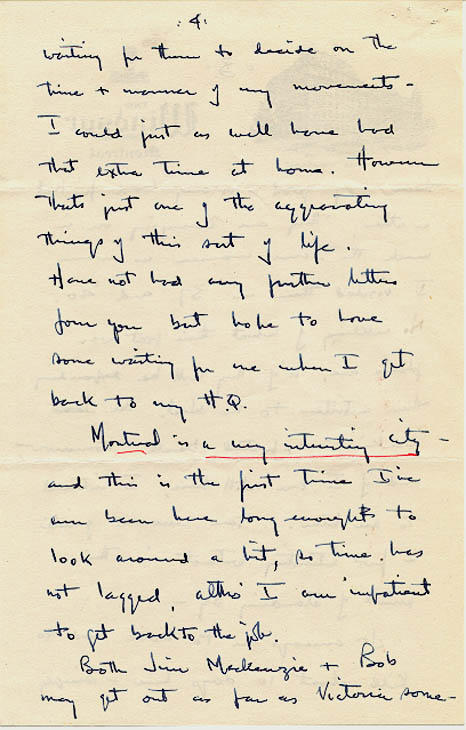 : 4 :
waiting for them to decide on the
time + manner of my movements -
I could just as well have had
that extra time at home. However
thats just one of the aggravating
things of this sort of life.
Have not had any further letters
from you but hope to have
some waiting for me when I get
back to my H.Q.
Montreal is a very interesting city -
and this is the first time I've
ever been here long enough to
look around a bit, so time has
not lagged, altho' I am impatient
to get back to the job.
Both Jim Mackenzie + Bob
may get out as far as Victoria some-